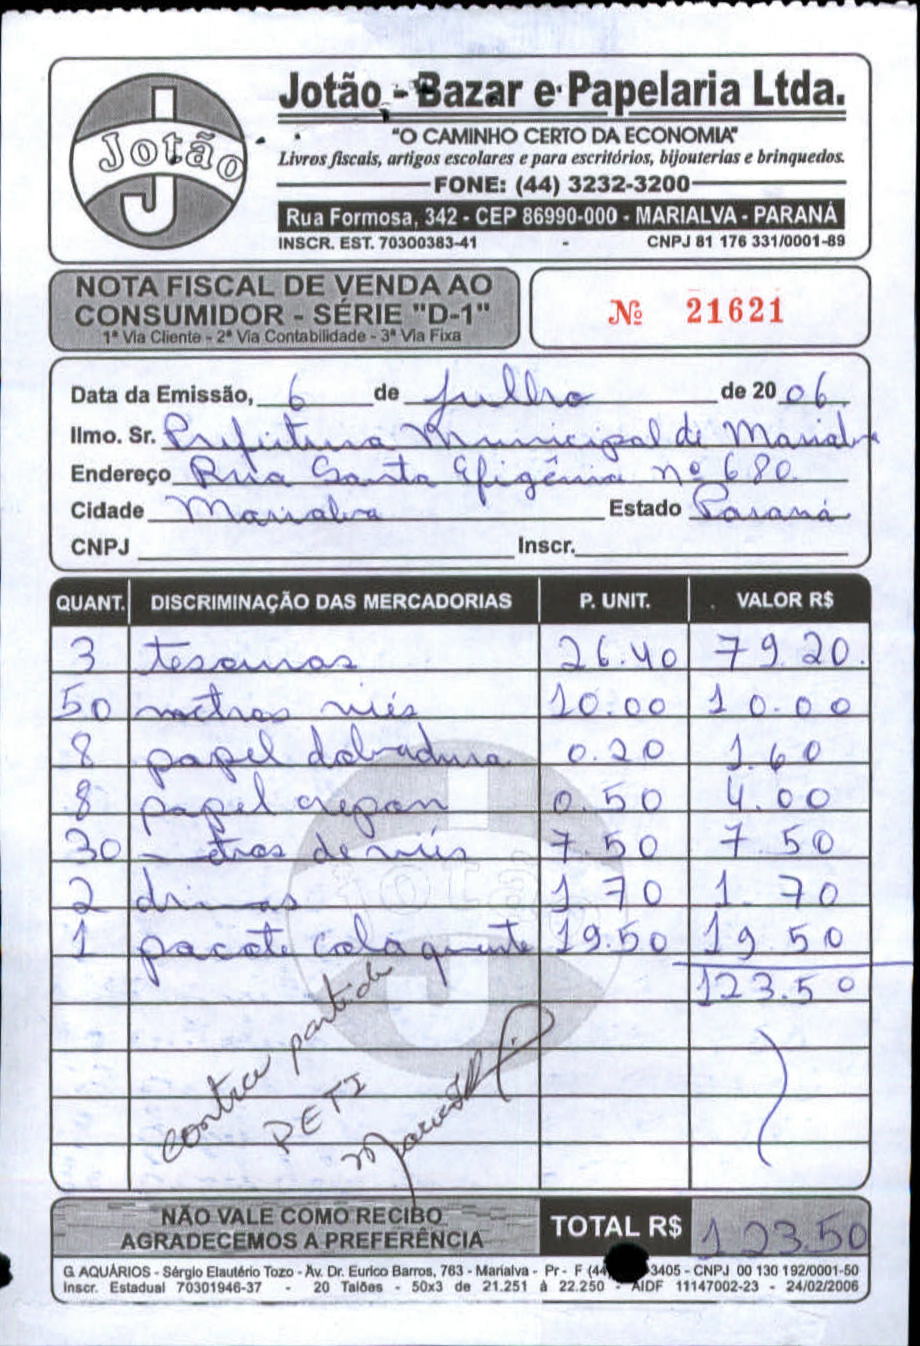 Jotão
Jotão - Bazar e Papelaria Ltda.
"O CAMINHO CERTO DA ECONOMIA"
Livros fiscais, artigos escolares e para escritórios, bijouterias e brinquedos.
FONE: (44) 3232-3200
Rua Formosa, 342 - CEP 86990-000 - MARIALVA - PARANÁ
INSCR. EST. 70300383-41 - CNPJ 81 176 331/0001-89
NOTA FISCAL DE VENDA AO
CONSUMIDOR - SÉRIE "D-1"
1ª Via Cliente - 2ª Via Contabilidade - 3ª Via Fixa
Nº 21621
Data da Emissão, 6 de Julho de 20 06
Ilmo. Sr. Prefeitura Municipal de Marialva
Endereço Rua Santa Efigênia nº 680
Cidade Marialva Estado Paraná
CNPJ Inscr.
QUANT. DISCRIMINAÇÃO DAS MERCADORIAS P. UNIT. VALOR R$
3 tesouras 26.40 79.20
50 metros viés 10.00 10.00
8 papel dobradura 0.20 1.60
8 papel crepon 0.50 4.00
30 metros de viés 7.50 7.50
2 1.70 1.70
1 pacote cola quente 19.50 19.50
123.50
contra partida
PETI
NÃO VALE COMO RECIBO
AGRADECEMOS A PREFERÊNCIA
TOTAL R$ 123.50
G. AQUÁRIOS - Sérgio Elautério Tozo - Av. Dr. Eurico Barros, 763 - Marialva - Pr - F (44) 3405 - CNPJ 00 130 192/0001-50
Inscr. Estadual 70301946-37 - 20 Talões - 50x3 de 21.251 à 22.250 - AIDF 11147002-23 - 24/02/2006